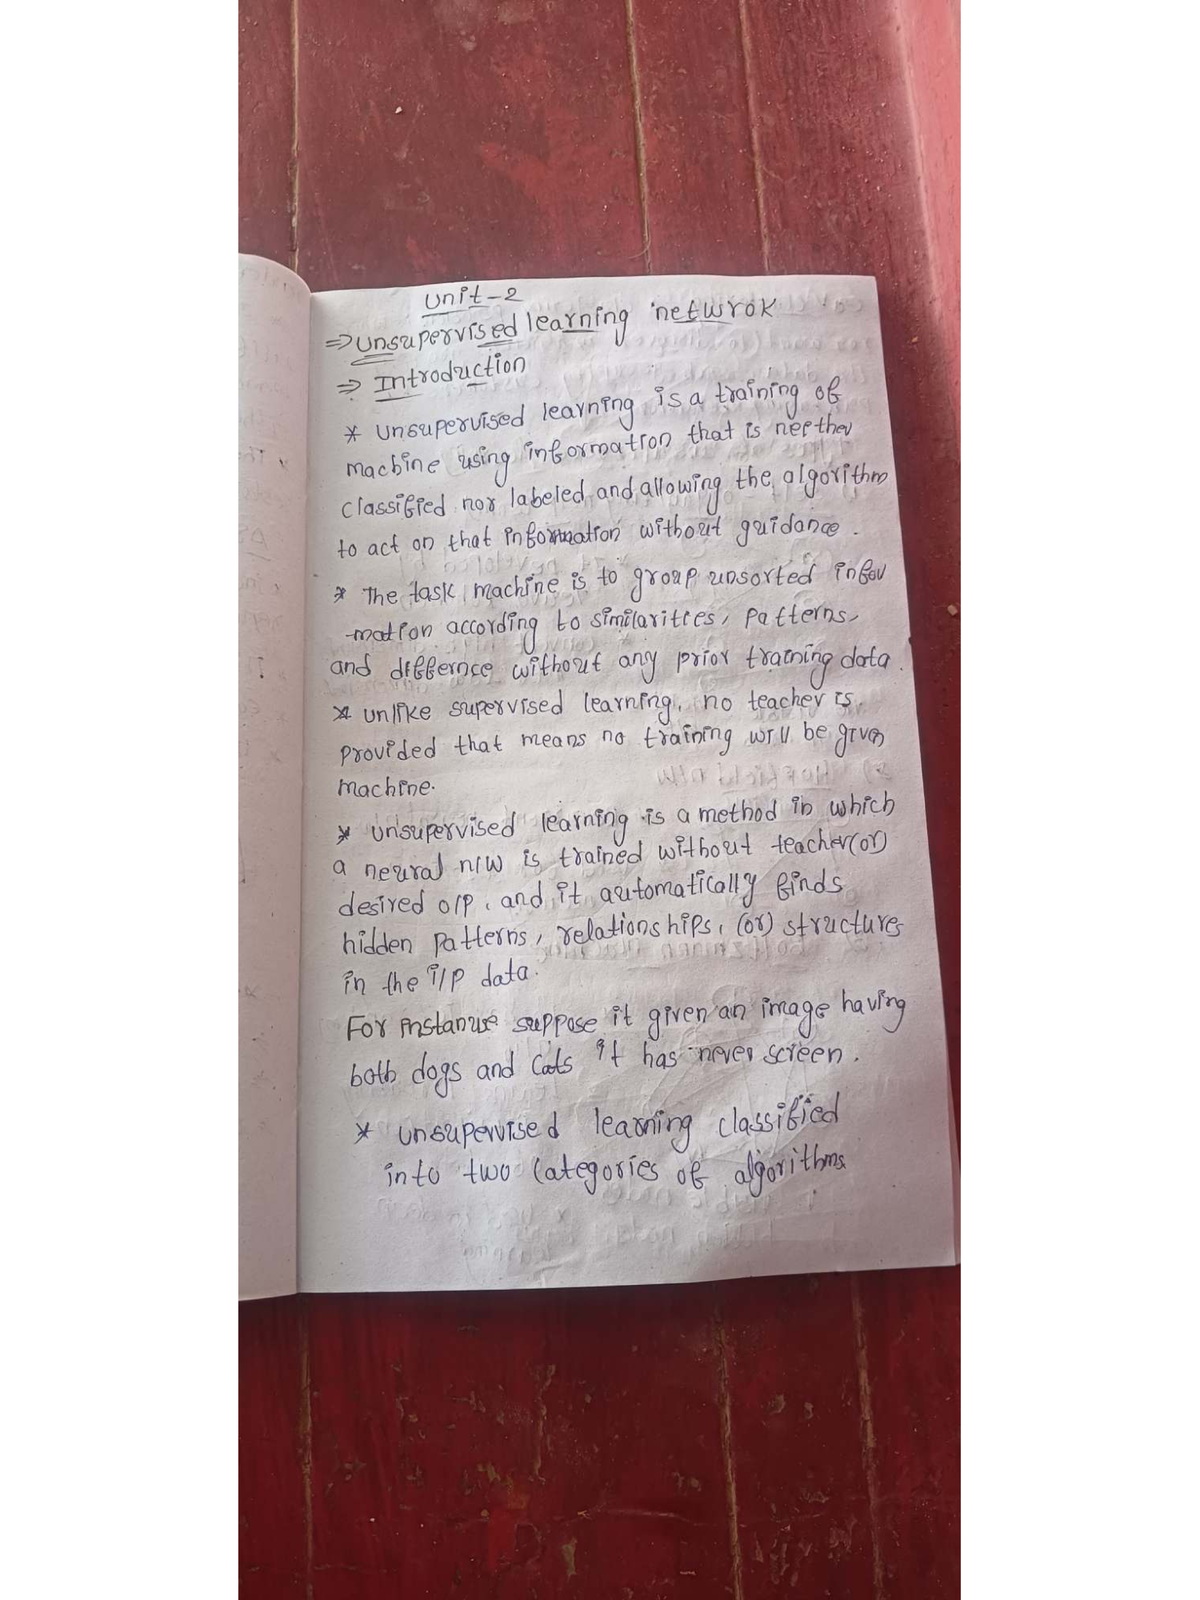 Unit-2
⇒ Unsupervised learning netwrok
⇒ Introduction
* Unsupervised learning is a training of
machine using information that is neether
classified nor labeled and allowing the algorithm
to act on that information without guidance.
* The task machine is to group unsorted infor
-mation according to similarities, patterns,
and differnce without any prior training data.
* unlike supervised learning, no teacher is
provided that means no training will be given
machine.
* unsupervised learning is a method in which
a neural n/w is trained without teacher(or)
desired o/p, and it automatically finds
hidden patterns, relationships, (or) structures
in the i/p data.
For instanue suppose it given an image having
both dogs and cats it has never screen.
* unsupervised learning classified
into two categories of algorithms